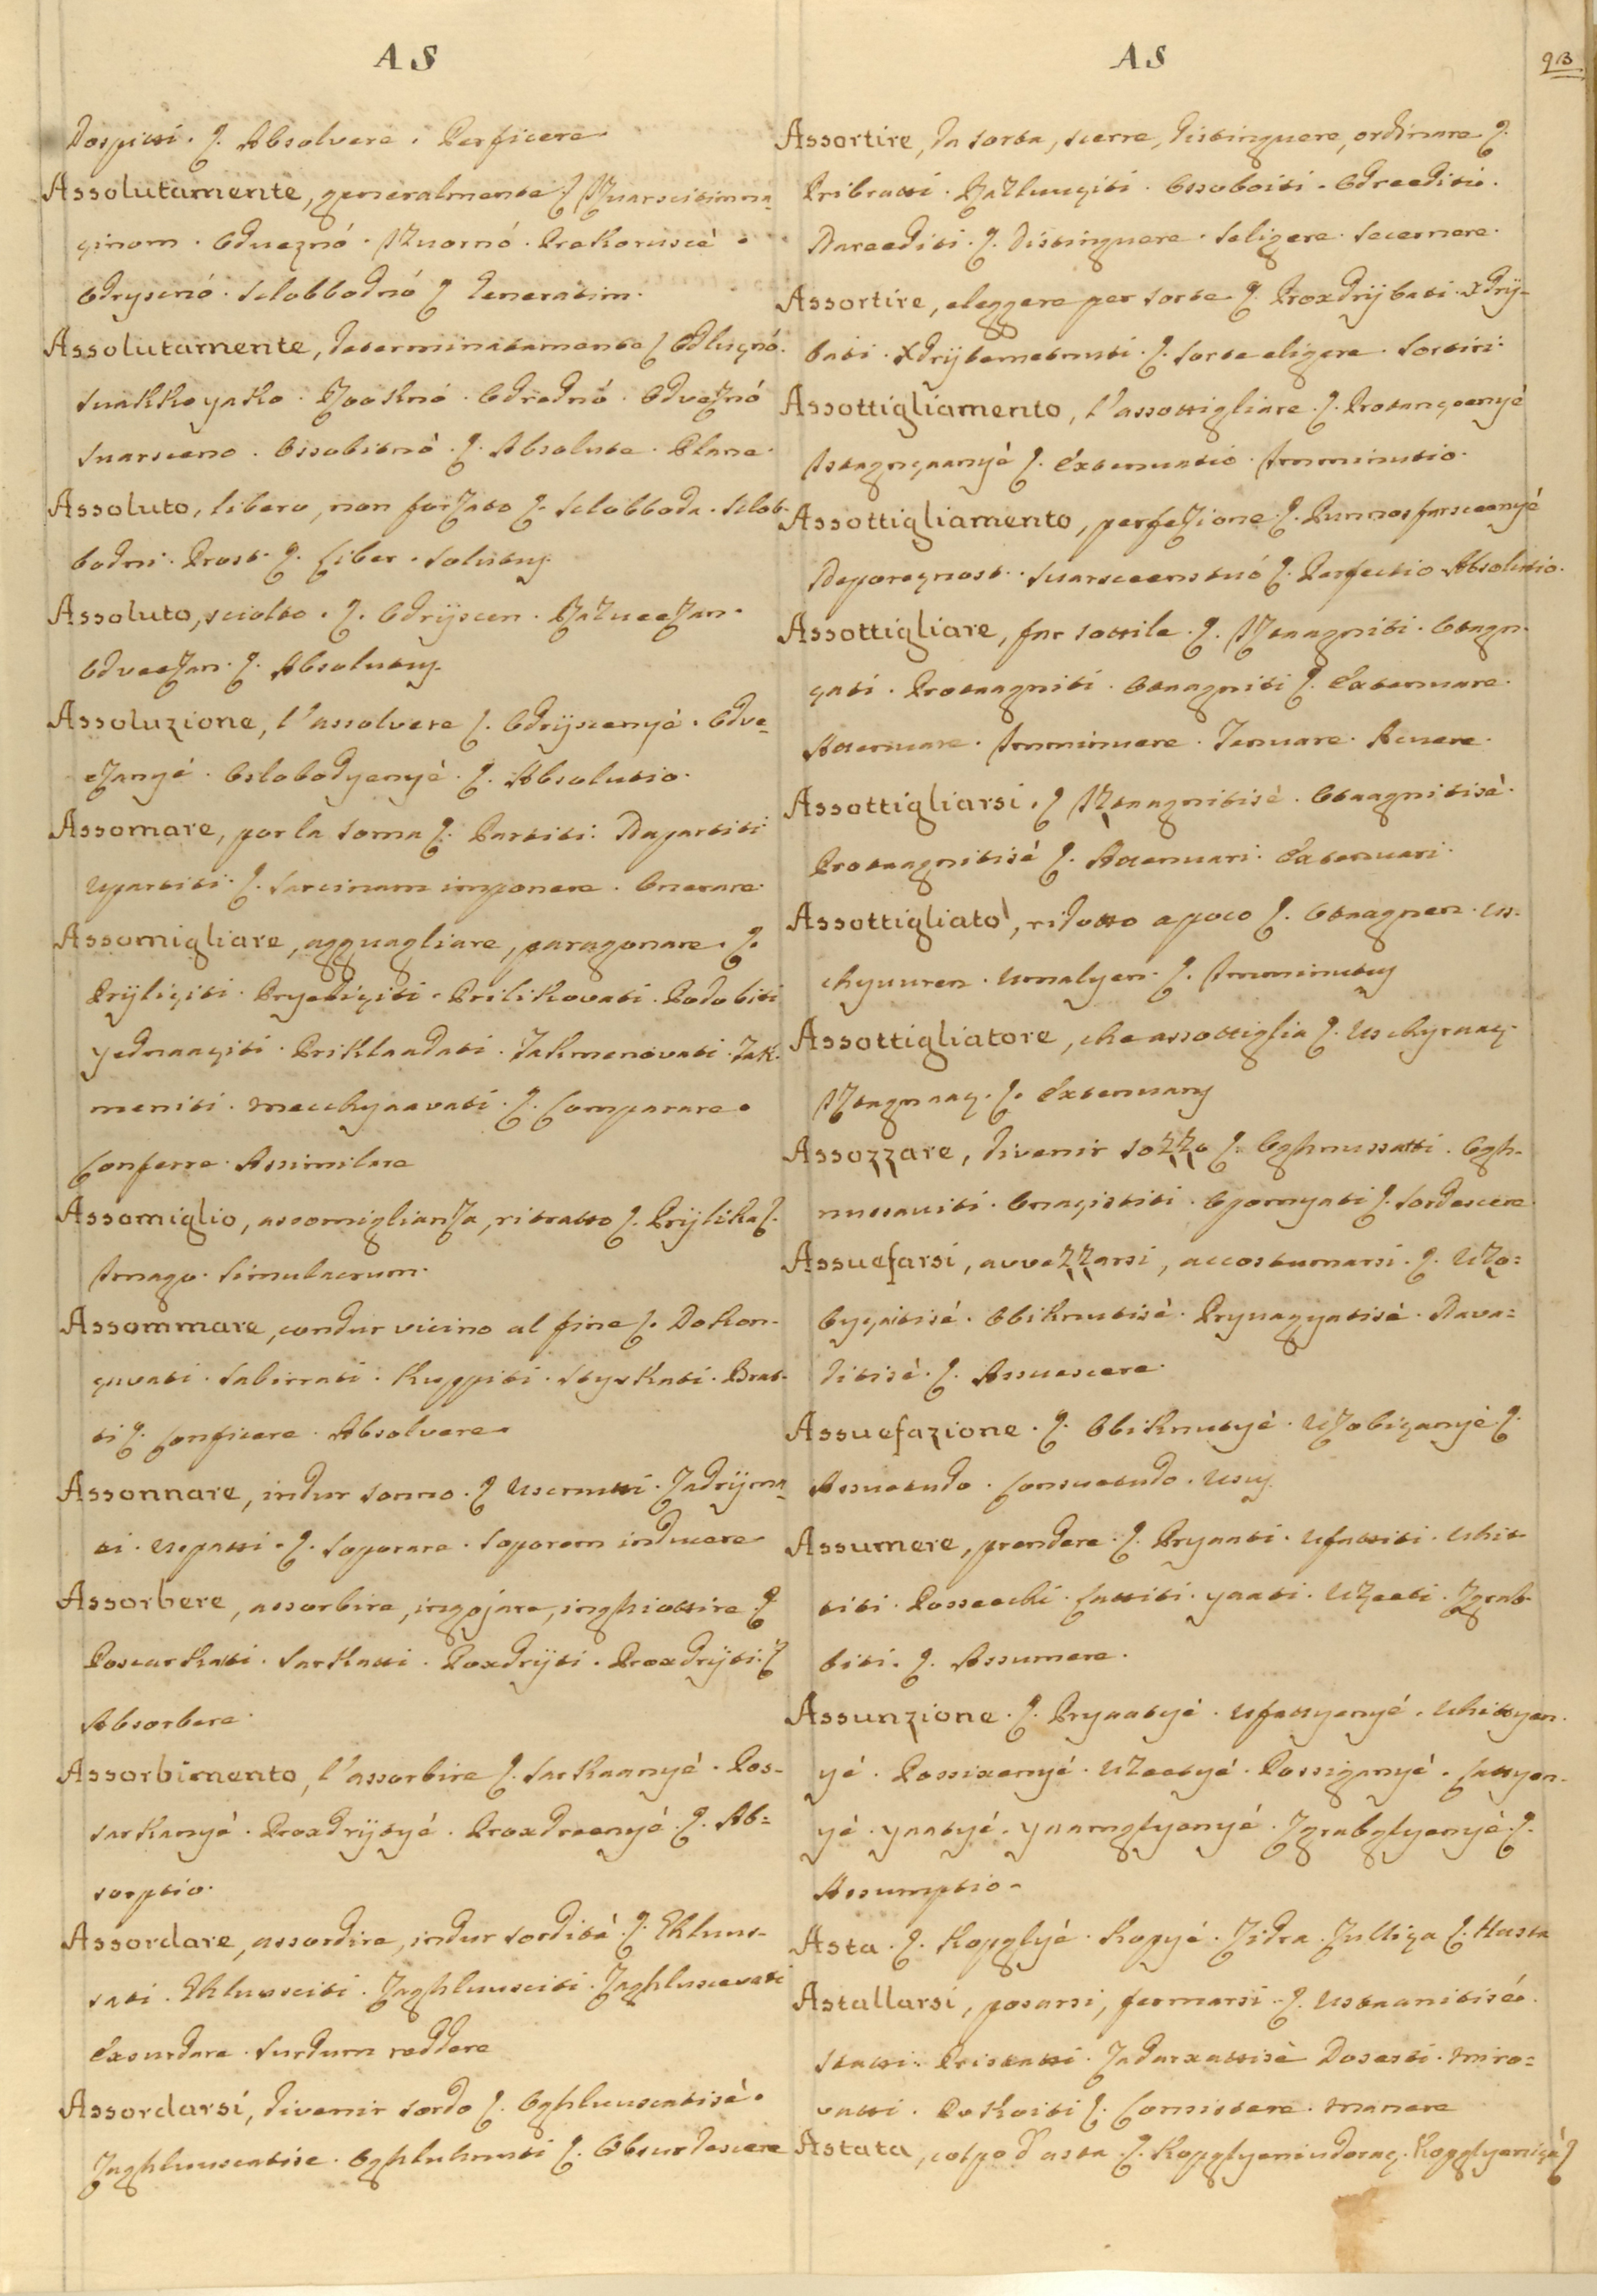 AS
Dospitti. ſ. Absolvere. Perficere
Assolutamente, generalmente ſ Nuarscitimna-
cinom. Odveznó. Nuornó. Prekorusce.
Odryscnó. Sclobbodnó ſ Generatim.
Assolutamente, determinatamente ſ Odlucnó.
Suakkoyako. Zooknó. Odrednó. Odveznó
Suarsceno. Ossobitnò. ſ. Absolute. Plane.
Assoluto, libero, non forzato ſ. Sclobboda. Sclob-
bodni. Prost. ſ. Liber. Solutus.
Assoluto, sciolto. ſ. Odrijscen. Razveezan.
Odveezan. ſ. Absolutus.
Assoluzione, l'assolvere ſ. Odrijscenyè. Odve-
ezanyé. Oslobodyenyè. ſ. Absolutio.
Assomare, por la soma ſ. Partiti. Napartiti
Upartiti. ſ. Sarcinam imponere. Onerare.
Assomigliare, agguagliare, paragonare. ſ.
Prijliciti. Pryediciti. Prilikovati. Podobiti
Yednaaciti. Priklaadati. Takmenovati. Tak-
meniti. Mecchyaavati. ſ. Comparare.
Conferre. Assimilare
Assomiglio, assomiglianza, ritratto ſ. Prijlika ſ.
Imago. Simulacrum.
Assommare, condur vicino al fine ſ. Dokon-
cuvati. Sabirrati. Kuppiti. Styskati. Brat-
ti ſ. Conficere. Absolvere.
Assonnare, indur sonno. ſ Usenutti. Zadrijma-
ti. Uspatti. ſ. Soporare. Soporem inducere
Assorbere, assorbire, ingojare, inghiottire. ſ
Poscarkatti. Sarkatti. Poxdrijti. Proxdrijti. ſ
Absorbere.
Assorbimento, l'assorbire ſ. Sarkaanyè. Pos-
sarkanyé. Proxdrijtyé. Proxdreenyé. ſ. Ab-
sorptio.
Assordare, assordire, indur sordità. ſ. Ghluus-
sati. Ghluusciti. Zaghluusciti. Zaghluscevati
Exsurdare. Surdum reddere
Assordarsi, divenir sordo ſ. Oghluuscatisè.
Zaghluuscatise. Oghluhnuti ſ. Obsurdescere
AS
93
Assortire, da sorta, scerre, distinguere, ordinare ſ.
Pribratti. Razluuciti. Ossoboiti. Odreediti.
Nareediti. ſ. Distinguere. Seligere. Secernere.
Assortire, eleggere per sorte ſ. Proxdrijbati. Xdrij-
bati. Xdrijbemetnuti. ſ. Sorte eligere. Sortiri.
Assottigliamento, l'assottigliare. ſ. Protancenyè
Istagncaanyè ſ. Extenuatio. Imminutio.
Assottigliamento, perfezione. ſ. Punnosfarsceanyé
Neporecnost. Suarsceenstuó ſ. Perfectio Absolutio.
Assottigliare, far sottile. ſ. Iztaagniti. Otagn-
cati. Protaagniti. Otaagniti ſ. Extenuare.
Attenuare. Imminuere. Tenuare. Acuere.
Assottigliarsi. ſ Iztaagnitisè. Otaagnitisè.
Protaagnitisé ſ. Attenuari. Extenuari.
Assottigliato, ridotto a poco ſ. Otaagnen. Us-
chyuuren. Umalyen. ſ. Imminutus
Assottigliatore, che assottiglia ſ. Uschyraac.
Iztagnaac. ſ. Extenuans
Assozzare, divenir sozzo ſ. Oghnussatti. Ogh-
nussaviti. Onacistiti. Ogornyati ſ. Sordescere.
Assuefarsi, avvezzarsi, accostumarsi. ſ. Uzo-
bycaitisé. Obiknutisè. Pryuagyatisè. Nava-
ditisè. ſ. Assuescere.
Assuefazione. ſ. Obiknutyè. Uzobicanyè ſ.
Assuetudo. Consuetudo. Usus.
Assumere, prendere. ſ. Pryaati. Ufattiti. Uhit-
titi. Posseechi. Cattiti. Yaati. Uzeeti. Zgrab-
biti. ſ. Assumere.
Assunzione. ſ. Pryaatyé. Ufattyenyé. Uhittyen-
yé. Possixenyé. Uzeetyé. Possizanyè. Cattyen-
yè. Yaatyé. Yaamglyenyé. Zgrabglyenyè. ſ.
Assumptio.
Asta. ſ. Kopglyé. Kopyé. Zidra. Zulliza ſ. Hasta
Astallarsi, posarsi, fermarsi. ſ. Ustaanitisé.
Statti. Pristatti. Zadarxattisè Dosesti. Miro-
vatti. Pokoiti ſ. Consistere. Manere
Astata, colpo d'asta. ſ. Kopglyeniudorac. Kopglyenicá ſ